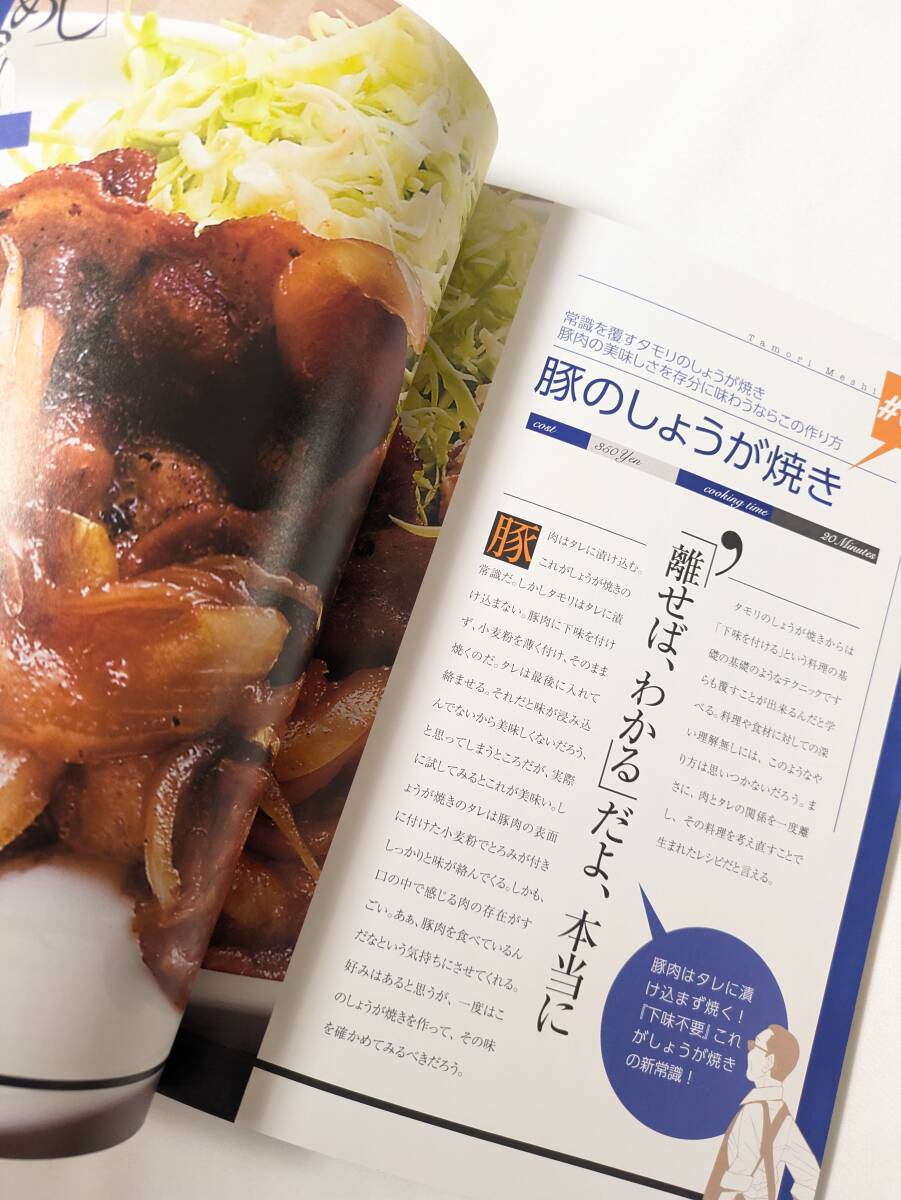 めし
Tamori Meshi
常識を覆すタモリのしょうが焼き
豚肉の美味しさを存分に味わうならこの作り方
豚のしょうが焼き
cost
350Yen
cooking time
20Minutes
豚肉はタレに漬け込む。
これがしょうが焼きの
常識だ。しかしタモリはタレに漬
け込まない。豚肉に下味を付け
ず、小麦粉を薄く付け、そのまま
焼くのだ。タレは最後に入れて
絡ませる。それだと味が浸み込
んでないから美味しくないだろう、
と思ってしまうところだが、実際
に試してみるとこれが美味い。し
ょうが焼きのタレは豚肉の表面
に付けた小麦粉でとろみが付き
しっかりと味が絡んでくる。しかも、
口の中で感じる肉の存在がす
ごい。あぁ、豚肉を食べているん
だなという気持ちにさせてくれる。
好みはあると思うが、一度はこ
のしょうが焼きを作って、その味
を確かめてみるべきだろう。
「離せば、わかる」だよ、本当に
タモリのしょうが焼きからは
「下味を付ける」という料理の基
礎の基礎のようなテクニックです
らも覆すことが出来るんだと学
べる。料理や食材に対しての深
い理解無しには、このようなや
り方は思いつかないだろう。ま
さに、肉とタレの関係を一度離
し、その料理を考え直すことで
生まれたレシピだと言える。
豚肉はタレに漬
け込まず焼く！
『下味不要』これ
がしょうが焼き
の新常識！